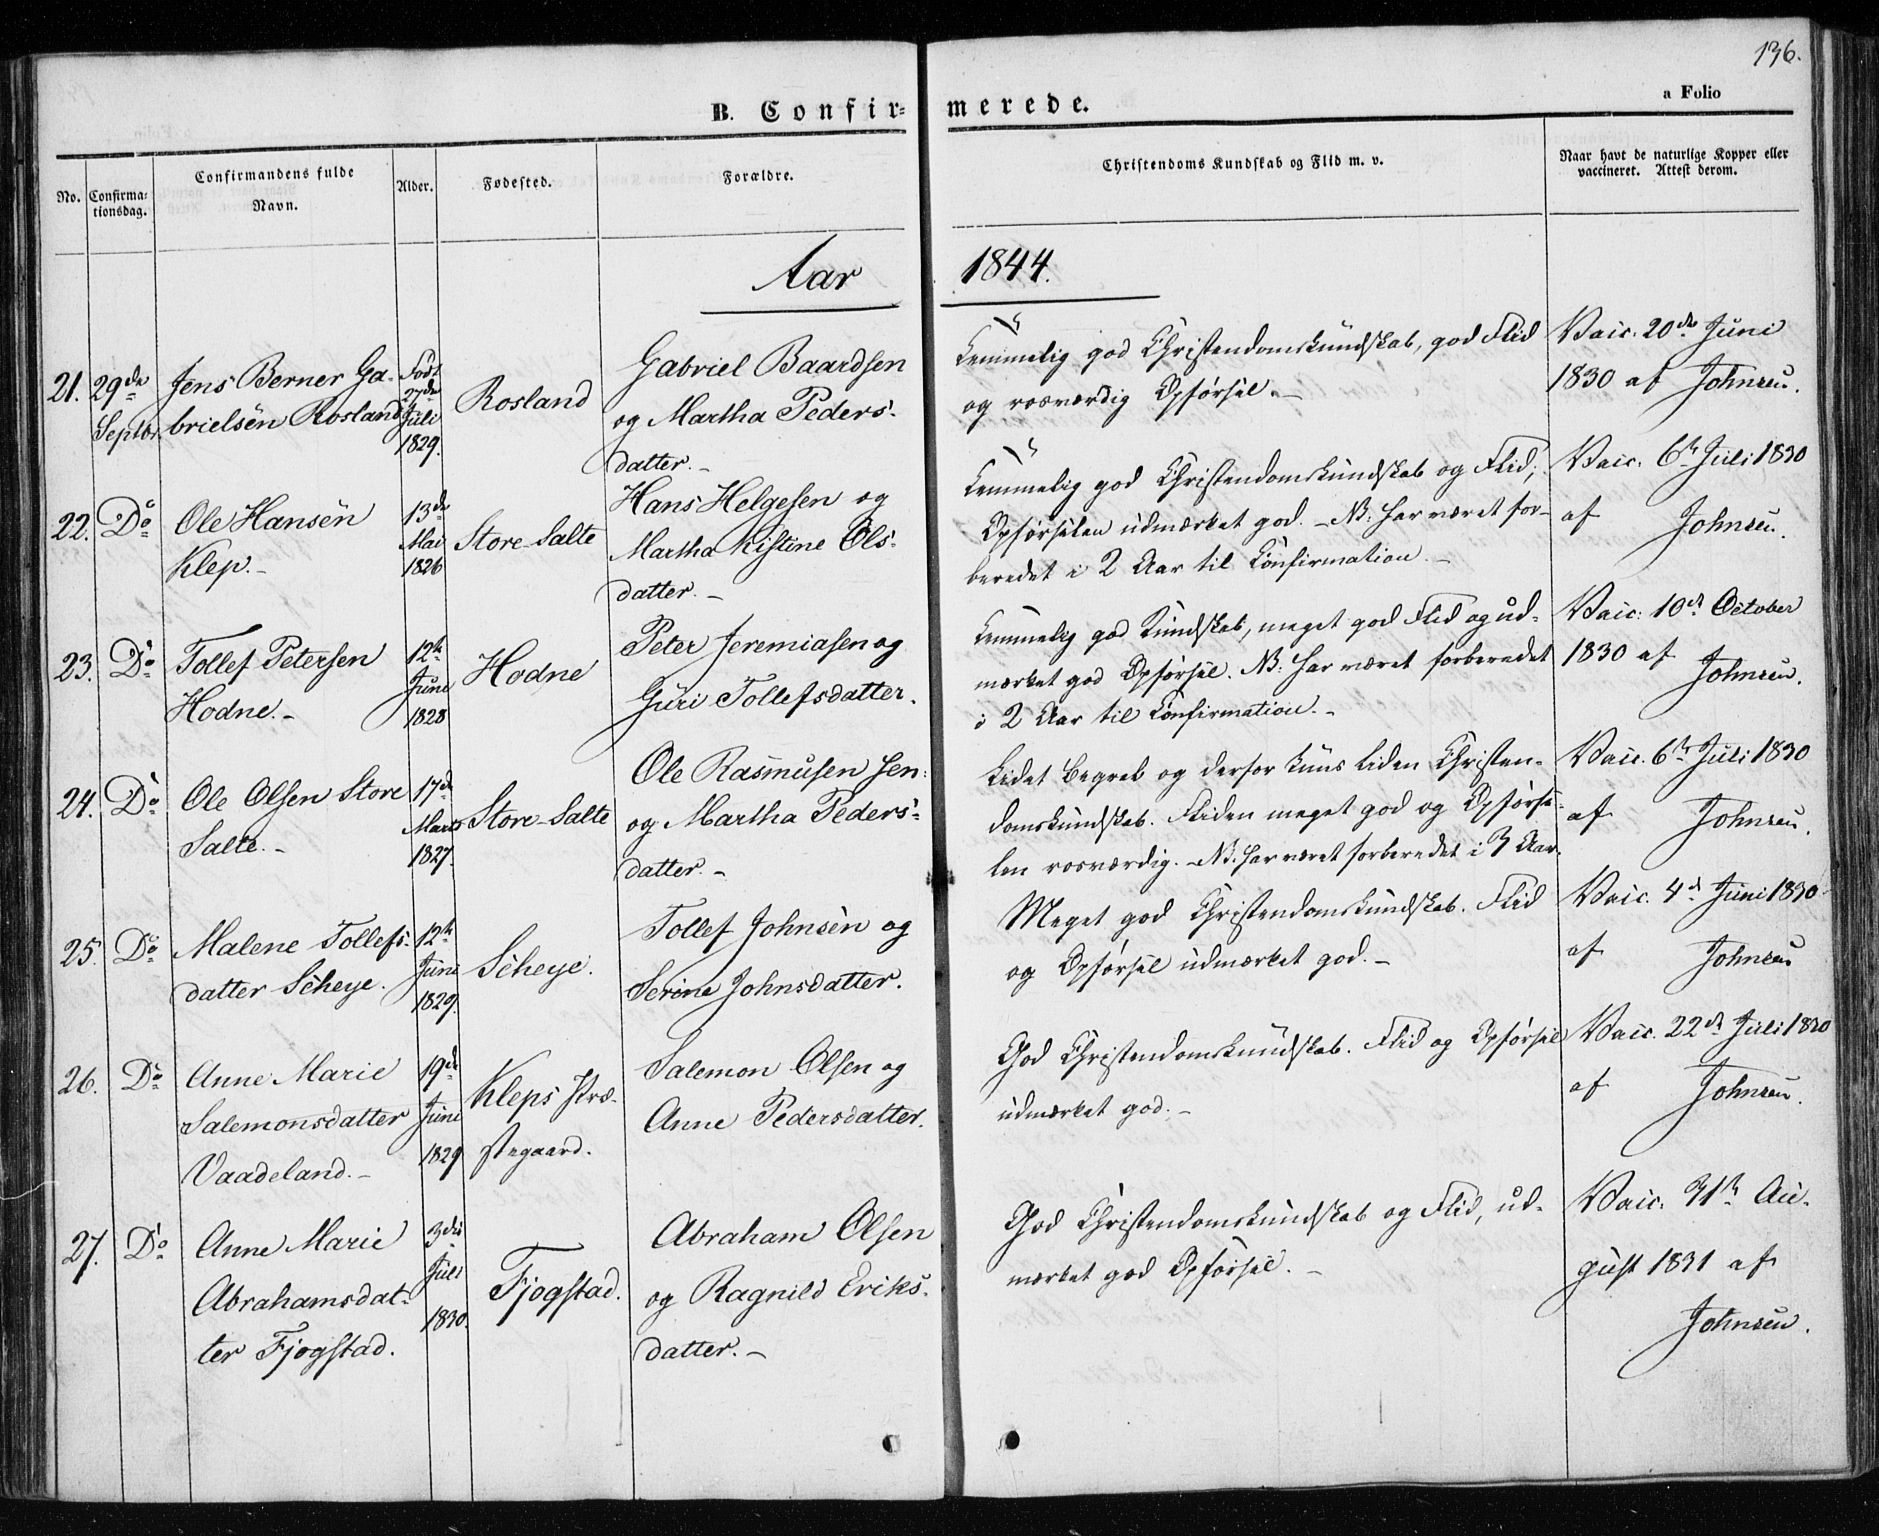 136.
a Folio
B. Confir-
merede.
No.
Confirma-
tionsdag.
Confirmandens fulde
Navn.
Alder.
Fødested.
Forældre.
Christendoms Kundskab og Flid m. v.
Naar havt de naturlige Kopper eller
vaccineret. Attest derom.
Aar
1844.
21.
29de
Septbr.
Jens Berner Ga-
brielsen Rosland
Født
27de
Juli
1829.
Rosland
Gabriel Baardsen
og Martha Peders-
datter. -
Temmelig god Christendomskundskab, god Flid
og rosværdig Opførsel. -
Vacc. 20de Juni
1830 af Johnsen.
22.
Do
Ole Hansen
Klep. -
13de
Mai
1826
Store-Salte
Hans Helgesen og
Martha Kistine Ols-
datter. -
Temmelig god Christendomskundskab og Flid;
Opførselen udmærket god. - NB: har været for-
beredet i 2 Aar til Confirmation. -
Vacc. 6te Juli 1830
af Johnsen.
23.
Do
Tollef Petersen
Hodne. -
12te
Juni
1828
Hodne
Peter Jeremiasen og
Guri Tollefsdatter.
Temmelig god Kundskab, meget god Flid og ud-
mærket god Opførsel. NB: har været forberedet
i 2 Aar til Confirmation. -
Vacc: 10de October
1830 af
Johnsen.
24.
Do
Ole Olsen Store
Salte. -
17de
Marts
1827.
Store-Salte
Ole Rasmusen sen:
og Martha Peders-
datter. -
Lidet Begreb og derfor kuns liden Christen-
domskundskab. Fliden meget god og Opførse-
len rosværdig. - NB. har været forberedet i 3 Aar.
Vacc. 6te Juli 1830
af Johnsen.
25.
Do
Malene Tollefs-
datter Scheye.
12te
Juni
1829.
Scheye.
Tollef Johnsen og
Serine Johnsdatter.
Meget god Christendomskundskab. Flid
og Opførsel udmærket god. -
Vacc. 4de Juni 1830
af Johnsen
26.
Do
Anne Marie
Salemonsdatter
Vaadeland. -
19de
Juni
1829
Kleps Præ-
stegaard.
Salemon Olsen og
Anne Pedersdatter.
God Christendomskundskab. Flid og Opførsel
udmærket god. -
Vacc. 22de Juli 1830
af Johnsen.
27.
Do
Anne Marie
Abrahamsdat-
ter Fjogstad.
3die
Juli
1830.
Fjogstad.
Abraham Olsen
og Ragnild Eriks-
datter. -
God Christendomskundskab og Flid, ud-
mærket god Opførsel. -
Vacc: 31te Au-
gust 1831 af
Johnsen.